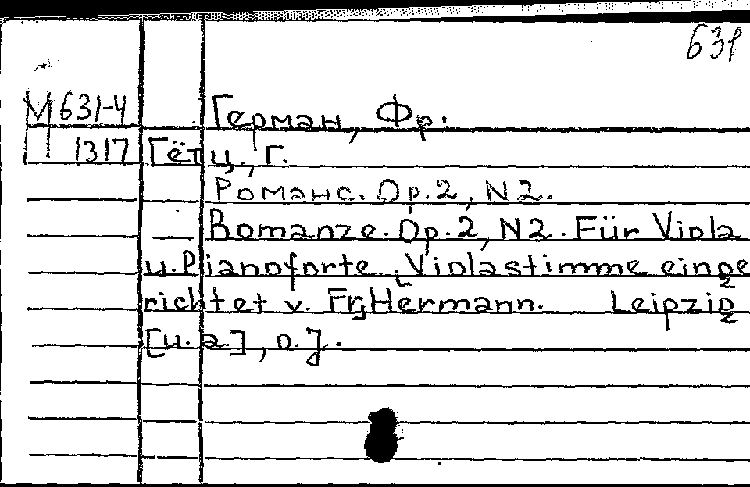 631
М 631-4 Герман, Фр.
1317 Гётц, Г.
Романс. Op.2, N2.
Romanze. Op.2, N2. Für Viola
u. Pianoforte. Violastimme einge
richtet v. Fr. Hermann. Leipzig
[u.a], o.J.